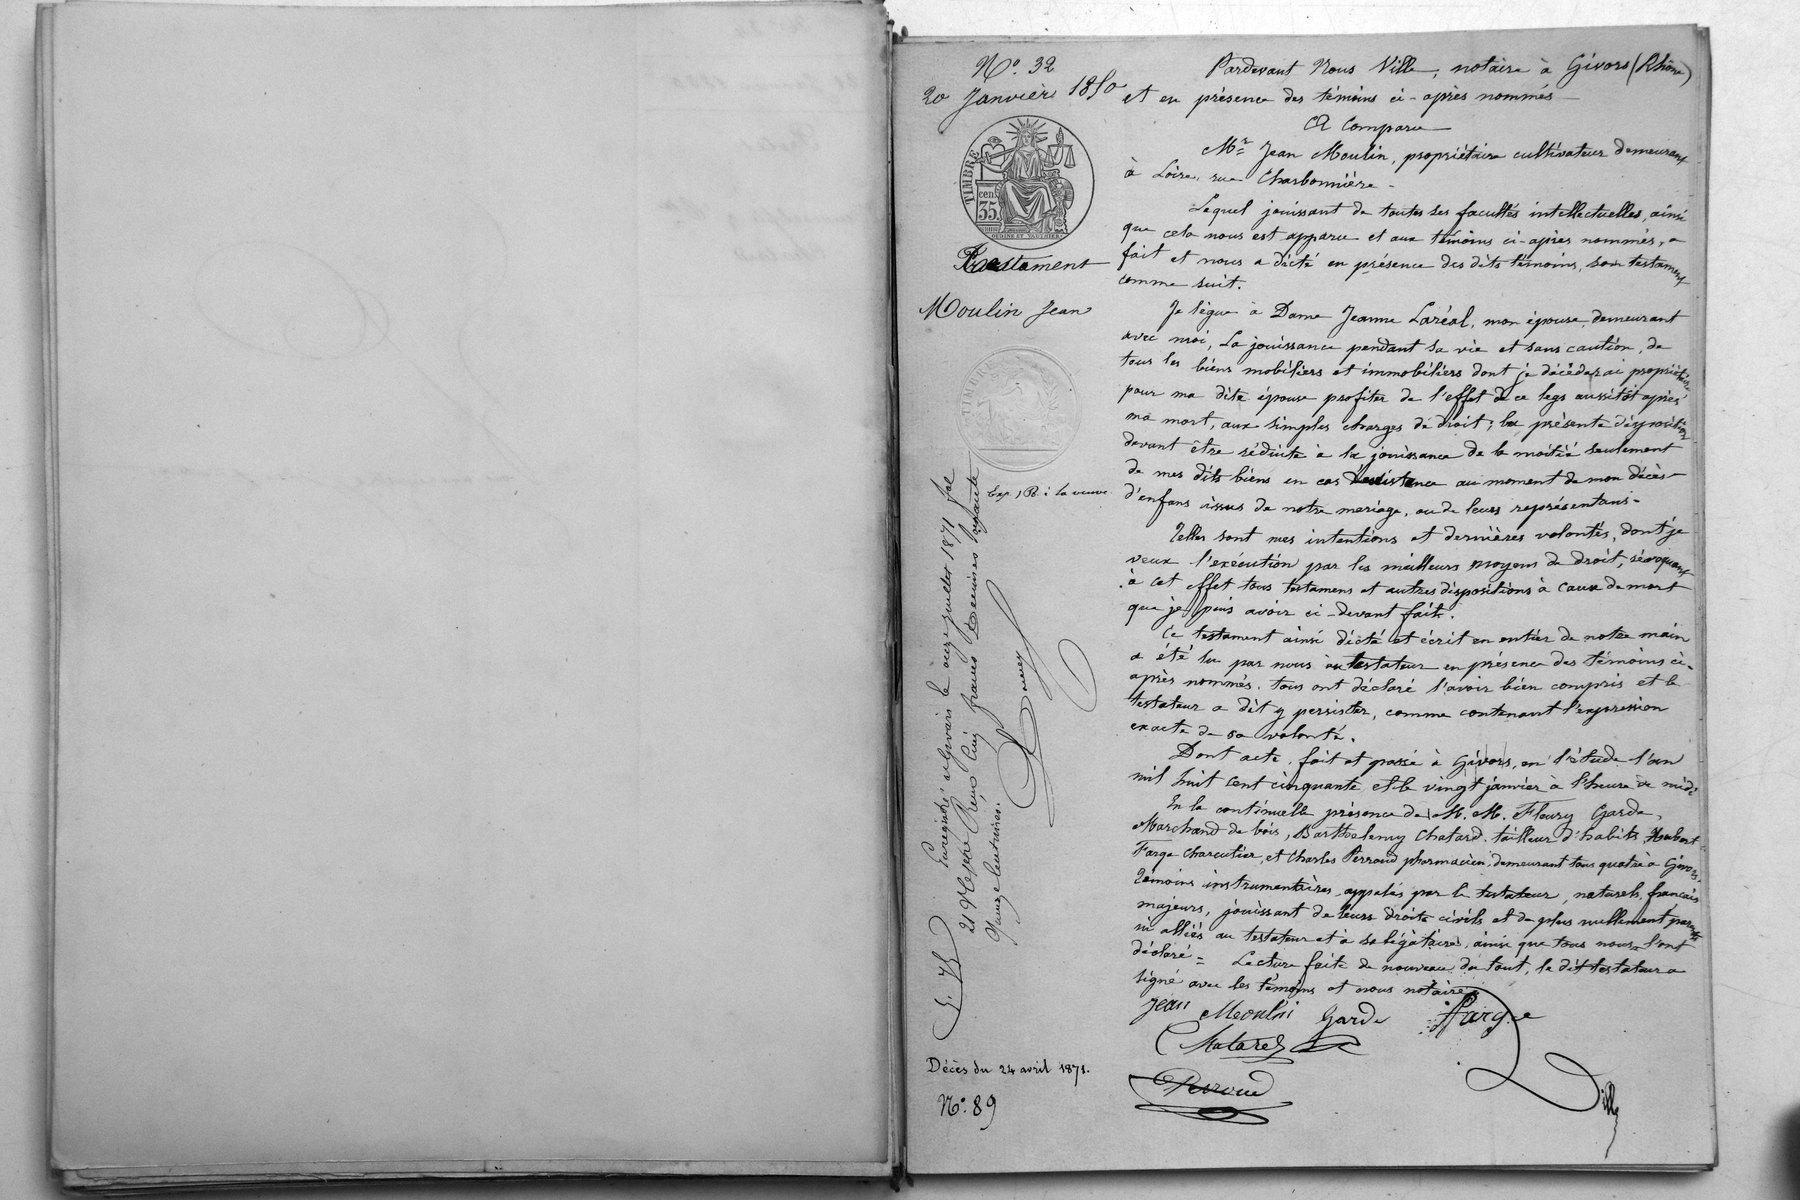 N°. 32
20 Janvier 1850
TIMBRE
cen.
35.
Testament
Moulin Jean
Exp, 1 R. à la veuve
Enregistré à Givors le onze juillet 1871 fol
21 V° C Reçu Cinq francs
quinze centimes.
Décès du 24 avril 1871.
N°. 89
Pardevant Nous Ville, notaire à Givors (Rhône)
et en présence des témoins ci-après nommés
A Comparu
Mr Jean Moulin, propriétaire cultivateur demeurant
à Loire, rue Charbonnière.
Lequel jouissant de toutes ses facultés intellectuelles, ainsi
que cela nous est apparu et aux témoins ci-après nommés, a
fait et nous a dicté en présence des dits témoins, son testament
comme suit.
Je lègue à Dame Jeanne Laréal, mon épouse, demeurant
avec moi, La jouissance pendant sa vie et sans caution, de
tous les biens mobiliers et immobiliers dont je décéderai propriétaire
pour ma dite épouse profiter de l'effet de ce legs aussitôt après
ma mort, aux simples charges de droit; la présente disposition
devant être réduite à la jouissance de la moitié seulement
de mes dits biens en cas d'existence au moment de mon décès
d'enfans issus de notre mariage, ou de leurs représentans.
Telles sont mes intentions et dernières volontés, dont je
veux l'exécution par les meilleurs moyens de droit, révoquant
à cet effet tous testamens et autres dispositions à cause de mort
que je puis avoir ci-devant fait.
Ce testament ainsi dicté et écrit en entier de notre main
a été lu par nous au testateur en présence des témoins ci-
après nommés. tous ont déclaré l'avoir bien compris et le
testateur a dit y persister, comme contenant l'expression
exacte de sa volonté.
Dont acte, fait et passé à Givors, en l'étude l'an
mil huit cent cinquante et le vingt janvier à l'heure de midi
En la continuelle présence de M. M. Fleury Garde,
Marchand de bois, Barthelemy Chatard, tailleur d'habits, Hubert
Farge Charcutier, et Charles Perroud pharmacien, demeurant tous quatre à Givors,
Témoins instrumentaires appelés par le testateur, naturels français
majeurs, jouissant de leurs droits civils et de plus nullement parents
ni alliés au testateur et à sa légataire, ainsi que tous nous l'ont
déclaré = Lecture faite de nouveau du tout, le dit testateur a
signé avec les témoins et nous notaire
Jean Moulin Garde Farge
Chatard
Perroud
Ville